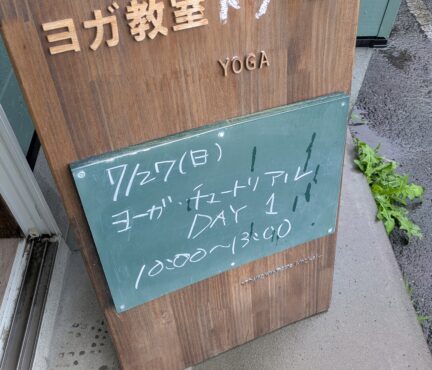 ヨガ教室
YOGA
7/27(日)
ヨーガ・チュートリアル
DAY 1
10:00〜13:00